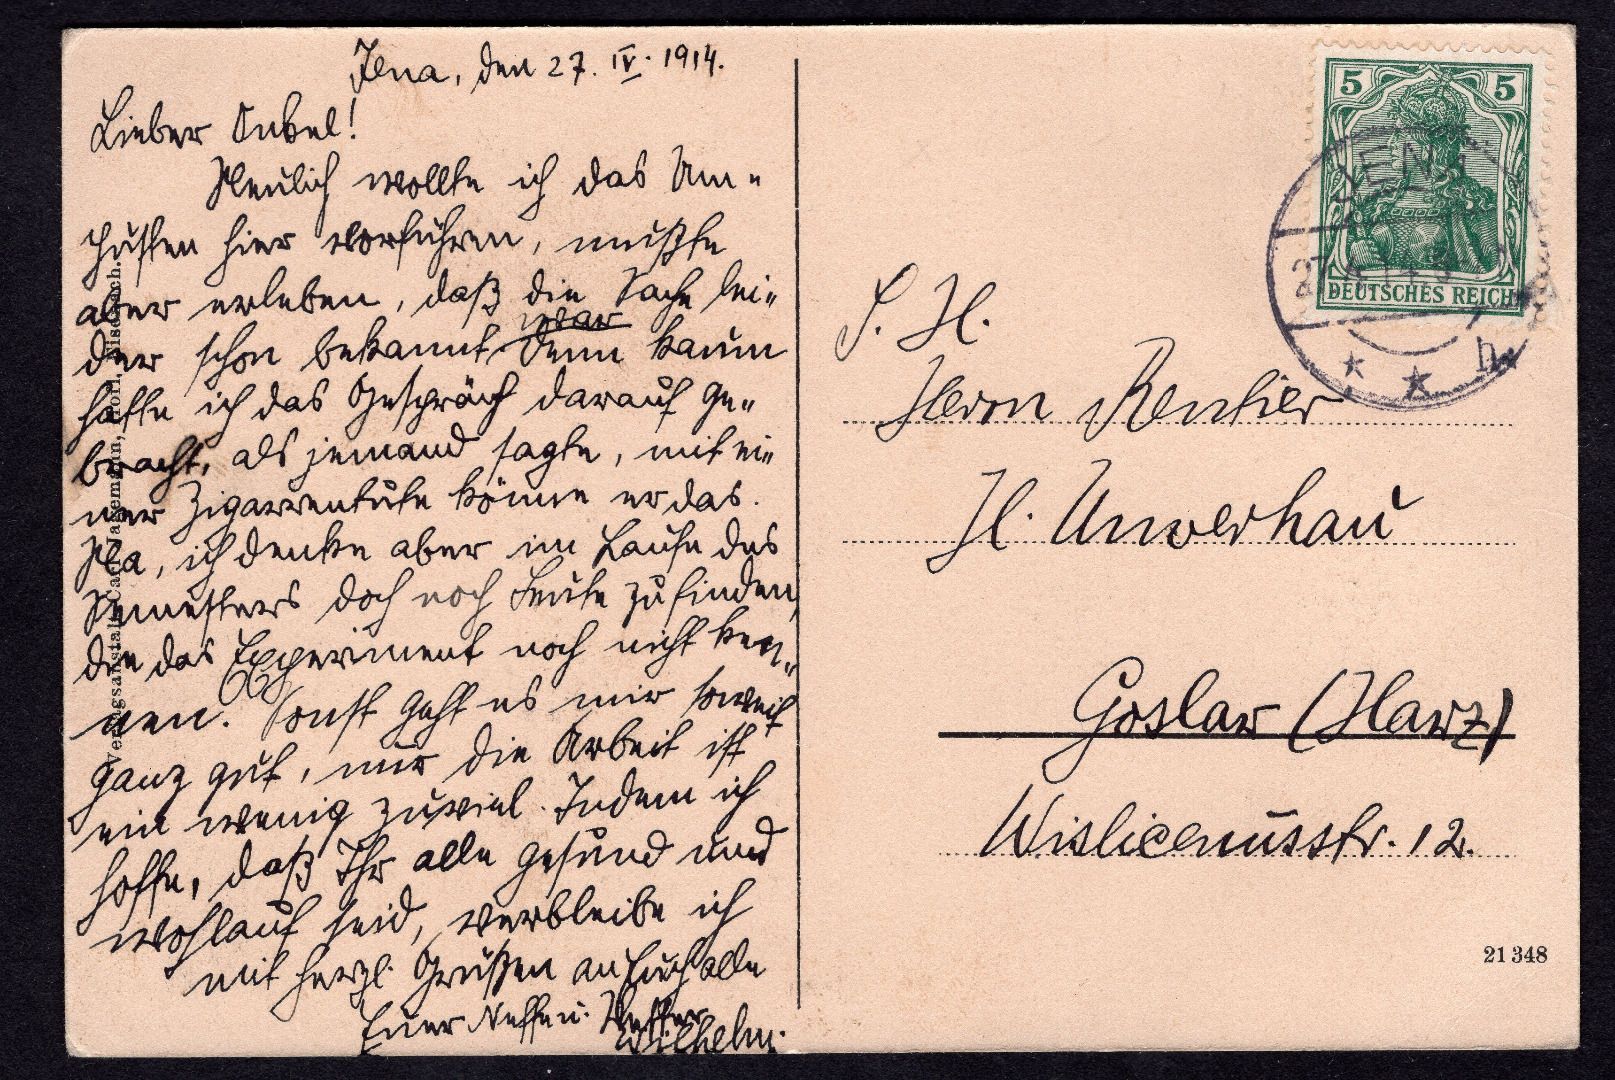 Jena, den 27. IV. 1914.
Lieber Onkel!
Neulich wollte ich das Um-
pusten hier vorführen, mußte
aber erleben, daß die Sache lei-
der schon bekannt war. Denn kaum
hatte ich das Gespräch darauf ge-
bracht, als jemand sagte, mit ei-
ner Zigarrentüte könne er das.
Na, ich denke aber im Laufe des
Semesters doch noch Leute zu finden,
die das Experiment noch nicht ken-
nen. Sonst geht es mir soweit
ganz gut, nur die Arbeit ist
ein wenig zuviel. Indem ich
hoffe, daß Ihr alle gesund und
wohlauf seid, verbleibe ich
mit herzl. Grüßen an Euch alle
Euer Neffe u. Vetter
Wilhelm.
Verlagsanstalt Carl Jagemann, Hofl., Eisenach.
5 5
DEUTSCHES REICH
JENA
27.4.14
S. H.
Herrn Rentier
H. Unverhau
Goslar (Harz)
Wislicenusstr. 12.
21348